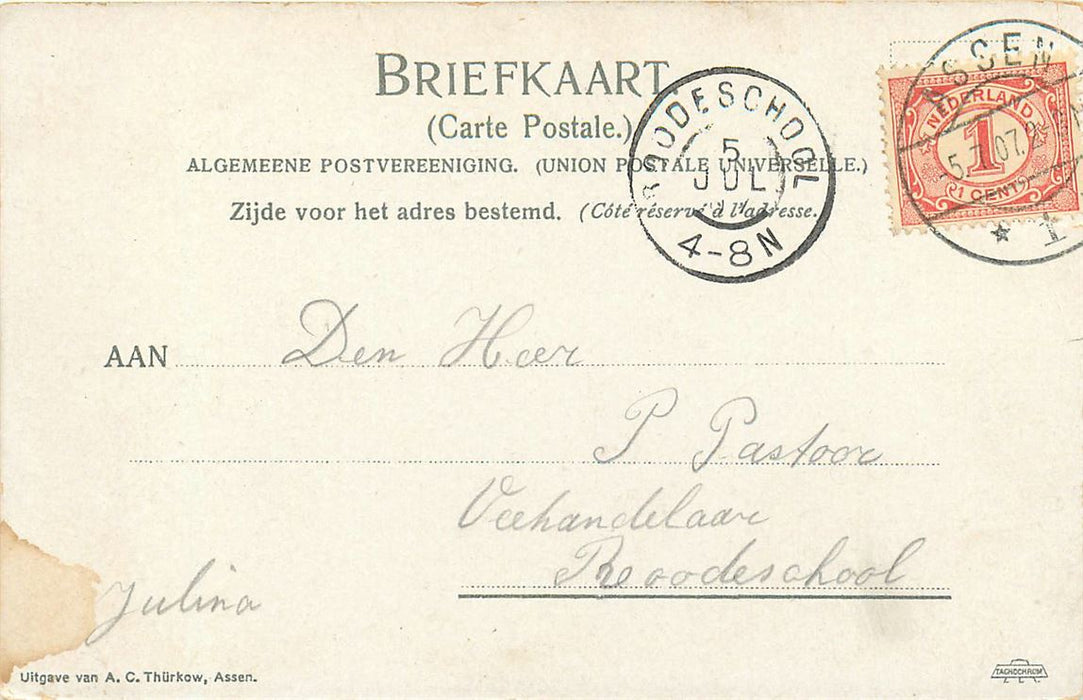 BRIEFKAART
(Carte Postale.)
ALGEMEENE POSTVEREENIGING. (UNION POSTALE UNIVERSELLE.)
Zijde voor het adres bestemd. (Côté réservé à l'adresse.)
ROODESCHOOL
5
JUL
4-8N
ASSEN
5.7.07.
1
NEDERLAND
1
1 CENT
AAN Den Heer
P Pastoor
Veehandelaar
Roodeschool
Julina
Uitgave van A. C. Thürkow, Assen.
TACHOCHROM